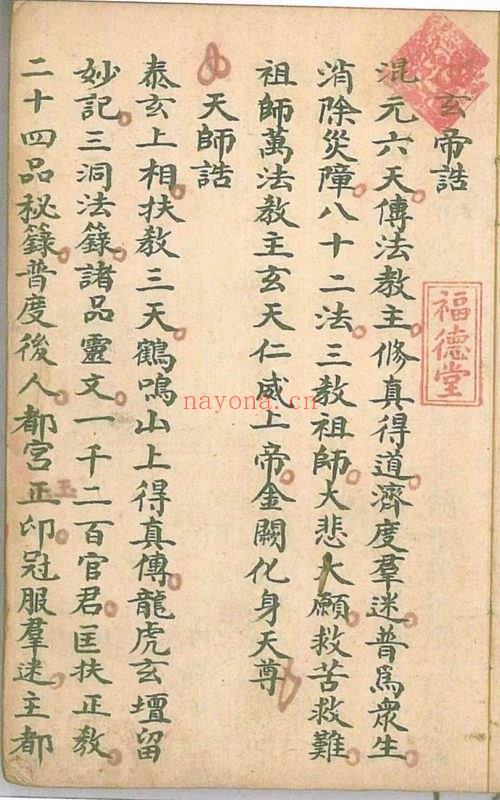 玄帝誥
混元六天傳法教主修真得道濟度羣迷普爲眾生
消除災障八十二法三教祖師大悲大願救苦救難
祖師萬法教主玄天仁威上帝金闕化身天尊
天師誥
泰玄上相扶教三天鶴鳴山上得真傳龍虎玄壇留
妙記三洞法籙諸品靈文一千二百官君匡扶正教
二十四品秘籙普度後人都宮正印冠服羣迷主都
玉
福德堂
nayona.cn